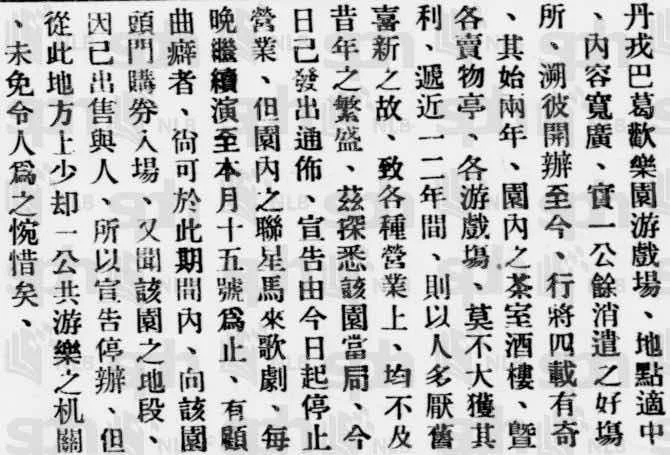 丹戎巴葛歡樂園游戲塲、地點適中
、內容寬廣、實一公餘消遣之好塲
所、溯彼開辦至今、行將四載有奇
、其始兩年、園內之茶室酒樓、曁
各賣物亭、各游戲塲、莫不大獲其
利、遞近一二年間、則以人多厭舊
喜新之故、致各種營業上、均不及
昔年之繁盛、茲探悉該園當局、今
日已發出通佈、宣告由今日起停止
營業、但園內之聯星馬來歌劇、每
晚繼續演至本月十五號爲止、有顧
曲癖者、尙可於此期間內、向該園
頭門購券入場、又聞該園之地段、
因已出售與人、所以宣告停辦、但
從此地方上少却一公共游樂之机關
、未免令人爲之惋惜矣、